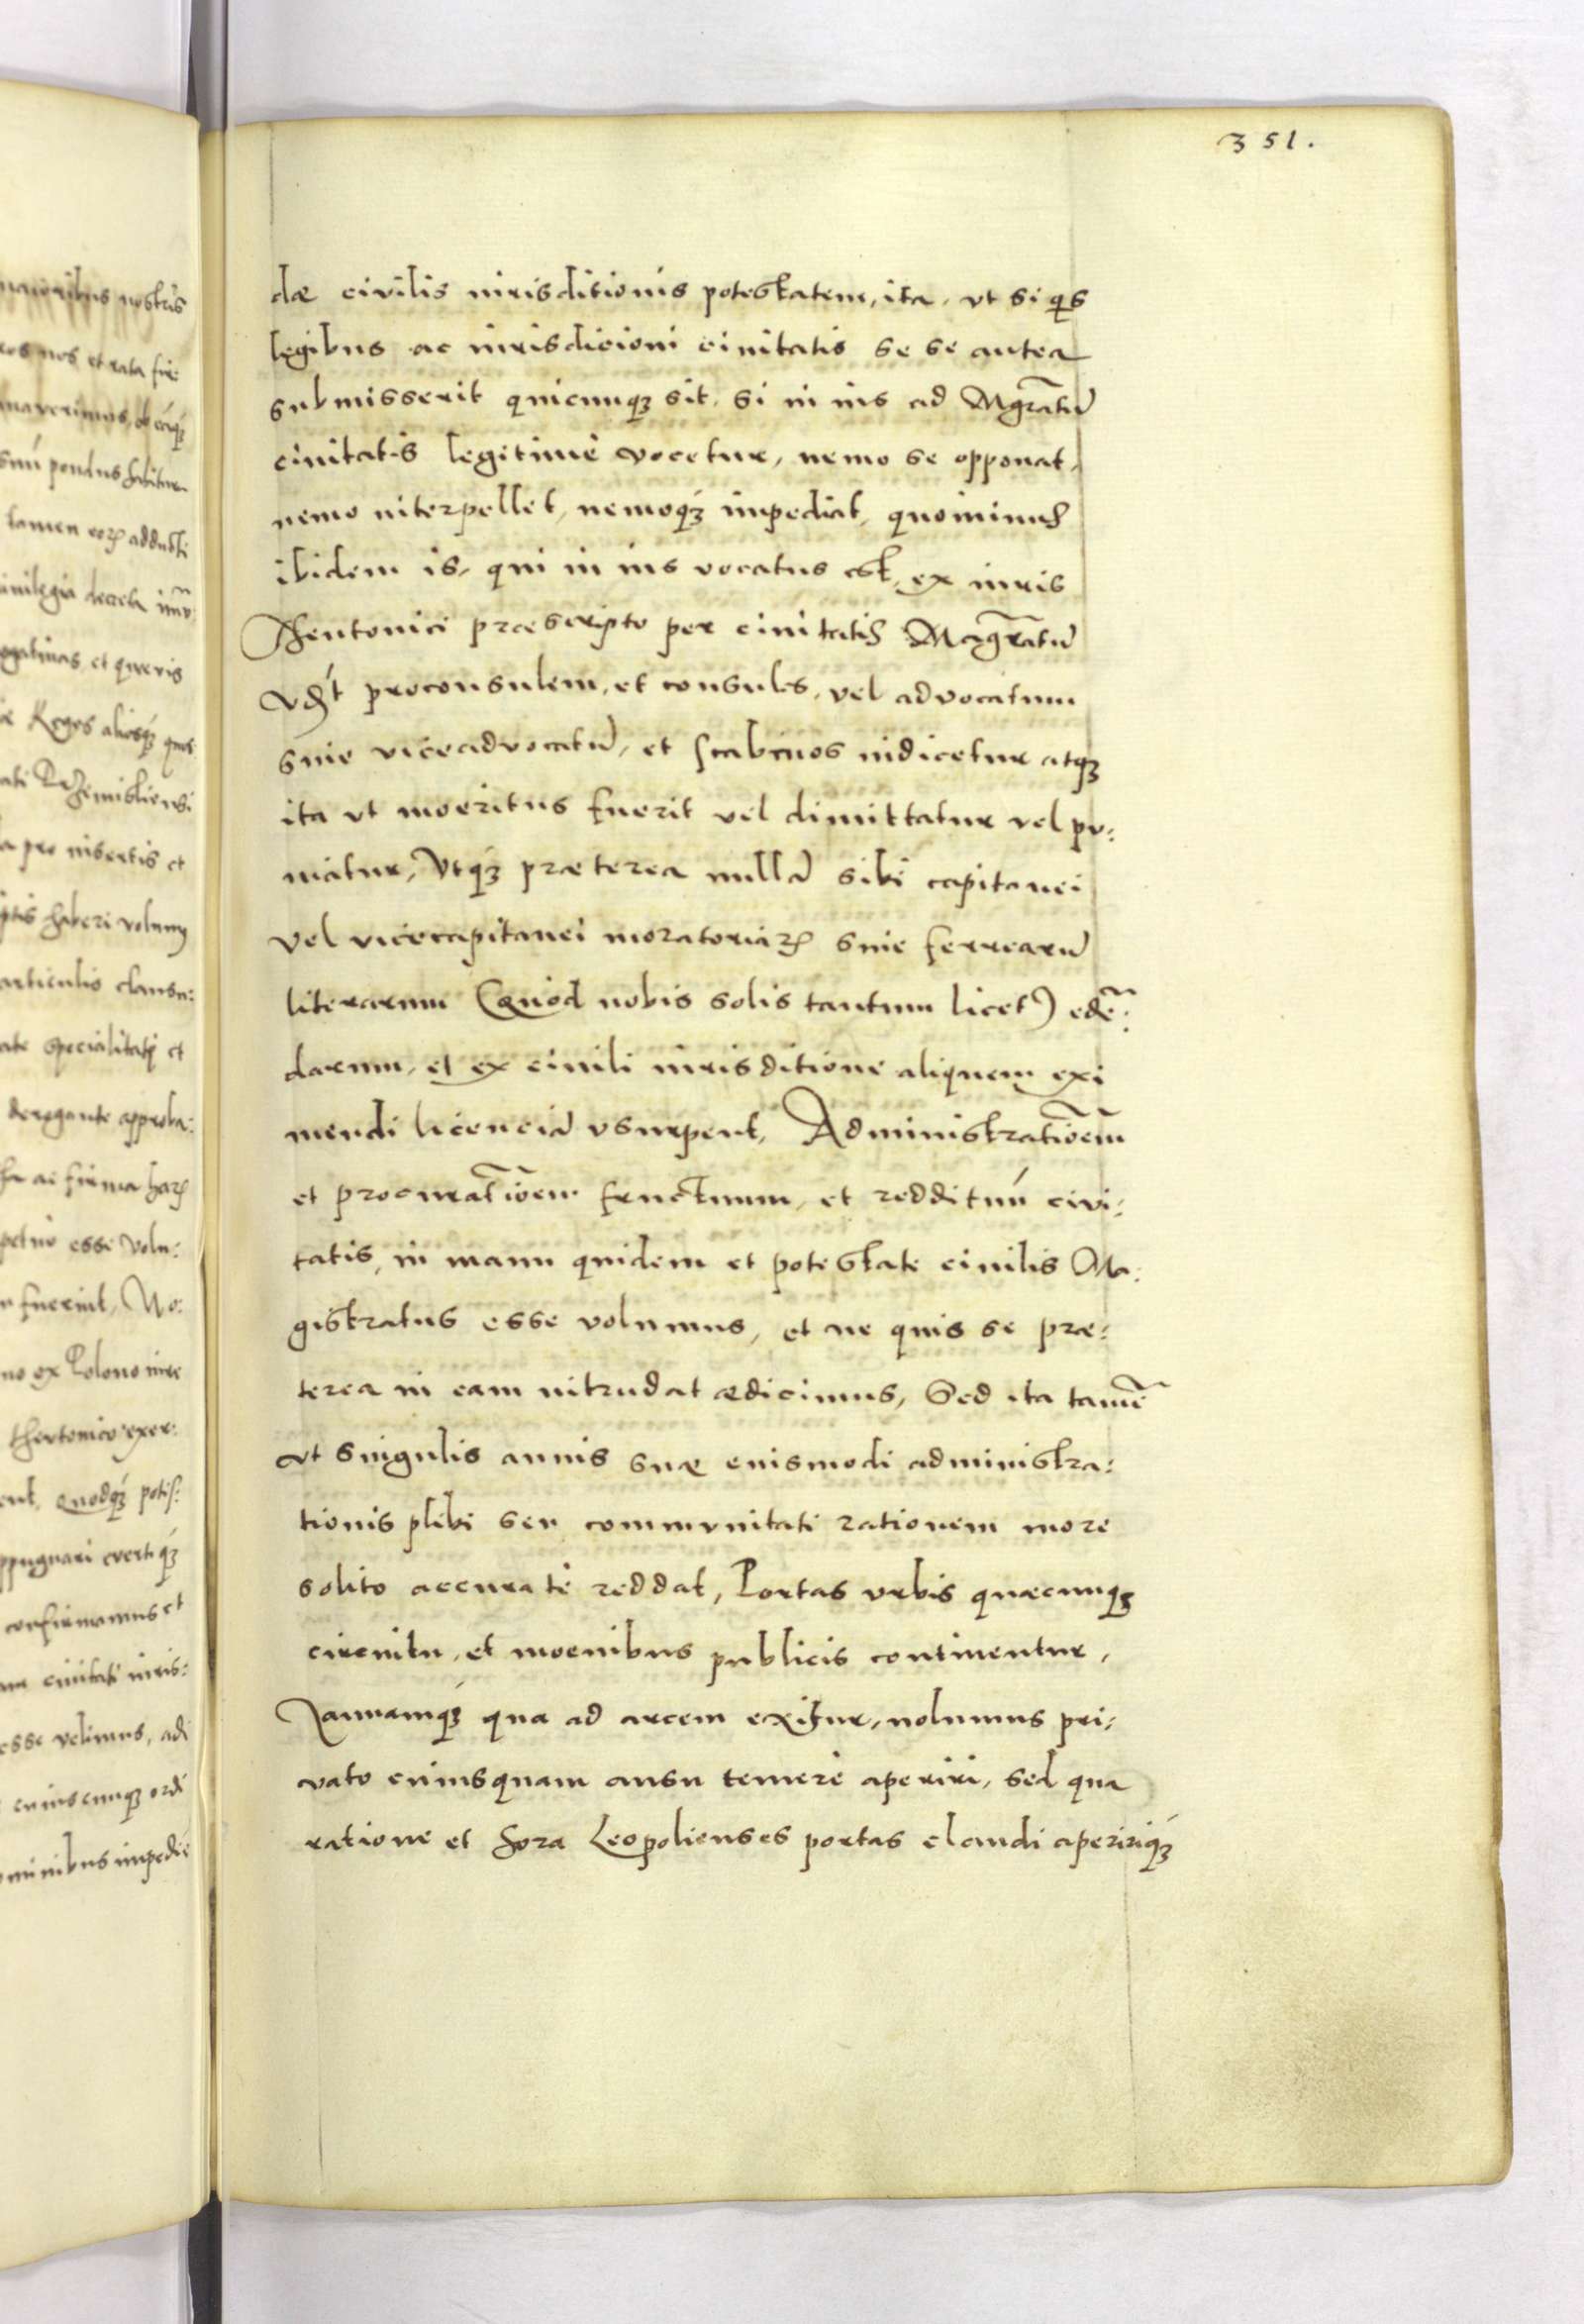 351.
dæ civilis iurisditionis potestatem, ita, vt si qs
legibus ac iurisdicioni ciuitatis se se antea
submisserit quicunq3 sit, si in ius ad Mgratũ
ciuitatis legitime vocetur, nemo se opponat,
nemo interpellet, nemoq3 impediat, quominus
ibidem is, qui in ius vocatus est, ex iuris
Theutonici præscripto per ciuitatis Magratũ
vdt proconsulem, et consules, vel advocatum
siue viceadvocatũ, et scabinos iudicetur atq3
ita vt moeritus fuerit vel dimittatur vel pu:
niatur, Vtq3 præterea nullã sibi capitanei
vel vicecapitanei moratoriaꝝ siue ferrearũ
literarum (Quod nobis solis tantum licet) edẽ:
darum, et ex ciuili iurisditione aliquem exi
mendi licenciã vsurpent, Administratiõem
et procuratiõem fructuum, et reddituũ civi:
tatis, in manu quidem et potestate ciuilis Ma:
gistratus esse volumus, et ne quis se præ:
terea in eam intrudat ædicimus, Sed ita tamẽ
vt singulis annis suæ euismodi administra:
tionis plebi seu commvnitati rationem more
solito accurate reddat, Portas vrbis quæcunq3
circuitu, et moenibus publicis continentur,
Ianuamq3 qua ad arcem exitur, nolumus pri:
vato cuiusquam ausu temere aperiri, sed qua
ratione et hora Leopolienses portas claudi apeririq3
maioribus nostris
et rata
pondus
tamen eoꝝ adducti
decreta
et
Reges aliosq3 quos
pro insertis et
haberi volum9
articulis clausu:
specialitati et
derogante approba:
ac firma haꝝ
esse volu:
fuerint, No:
ex Polono iure
thevtonico exer:
quodq3 potis:
evertiq3
confirmamus et
ciuitati iuris:
esse velimus, adi
cuiuscunq3 ordi
impedie